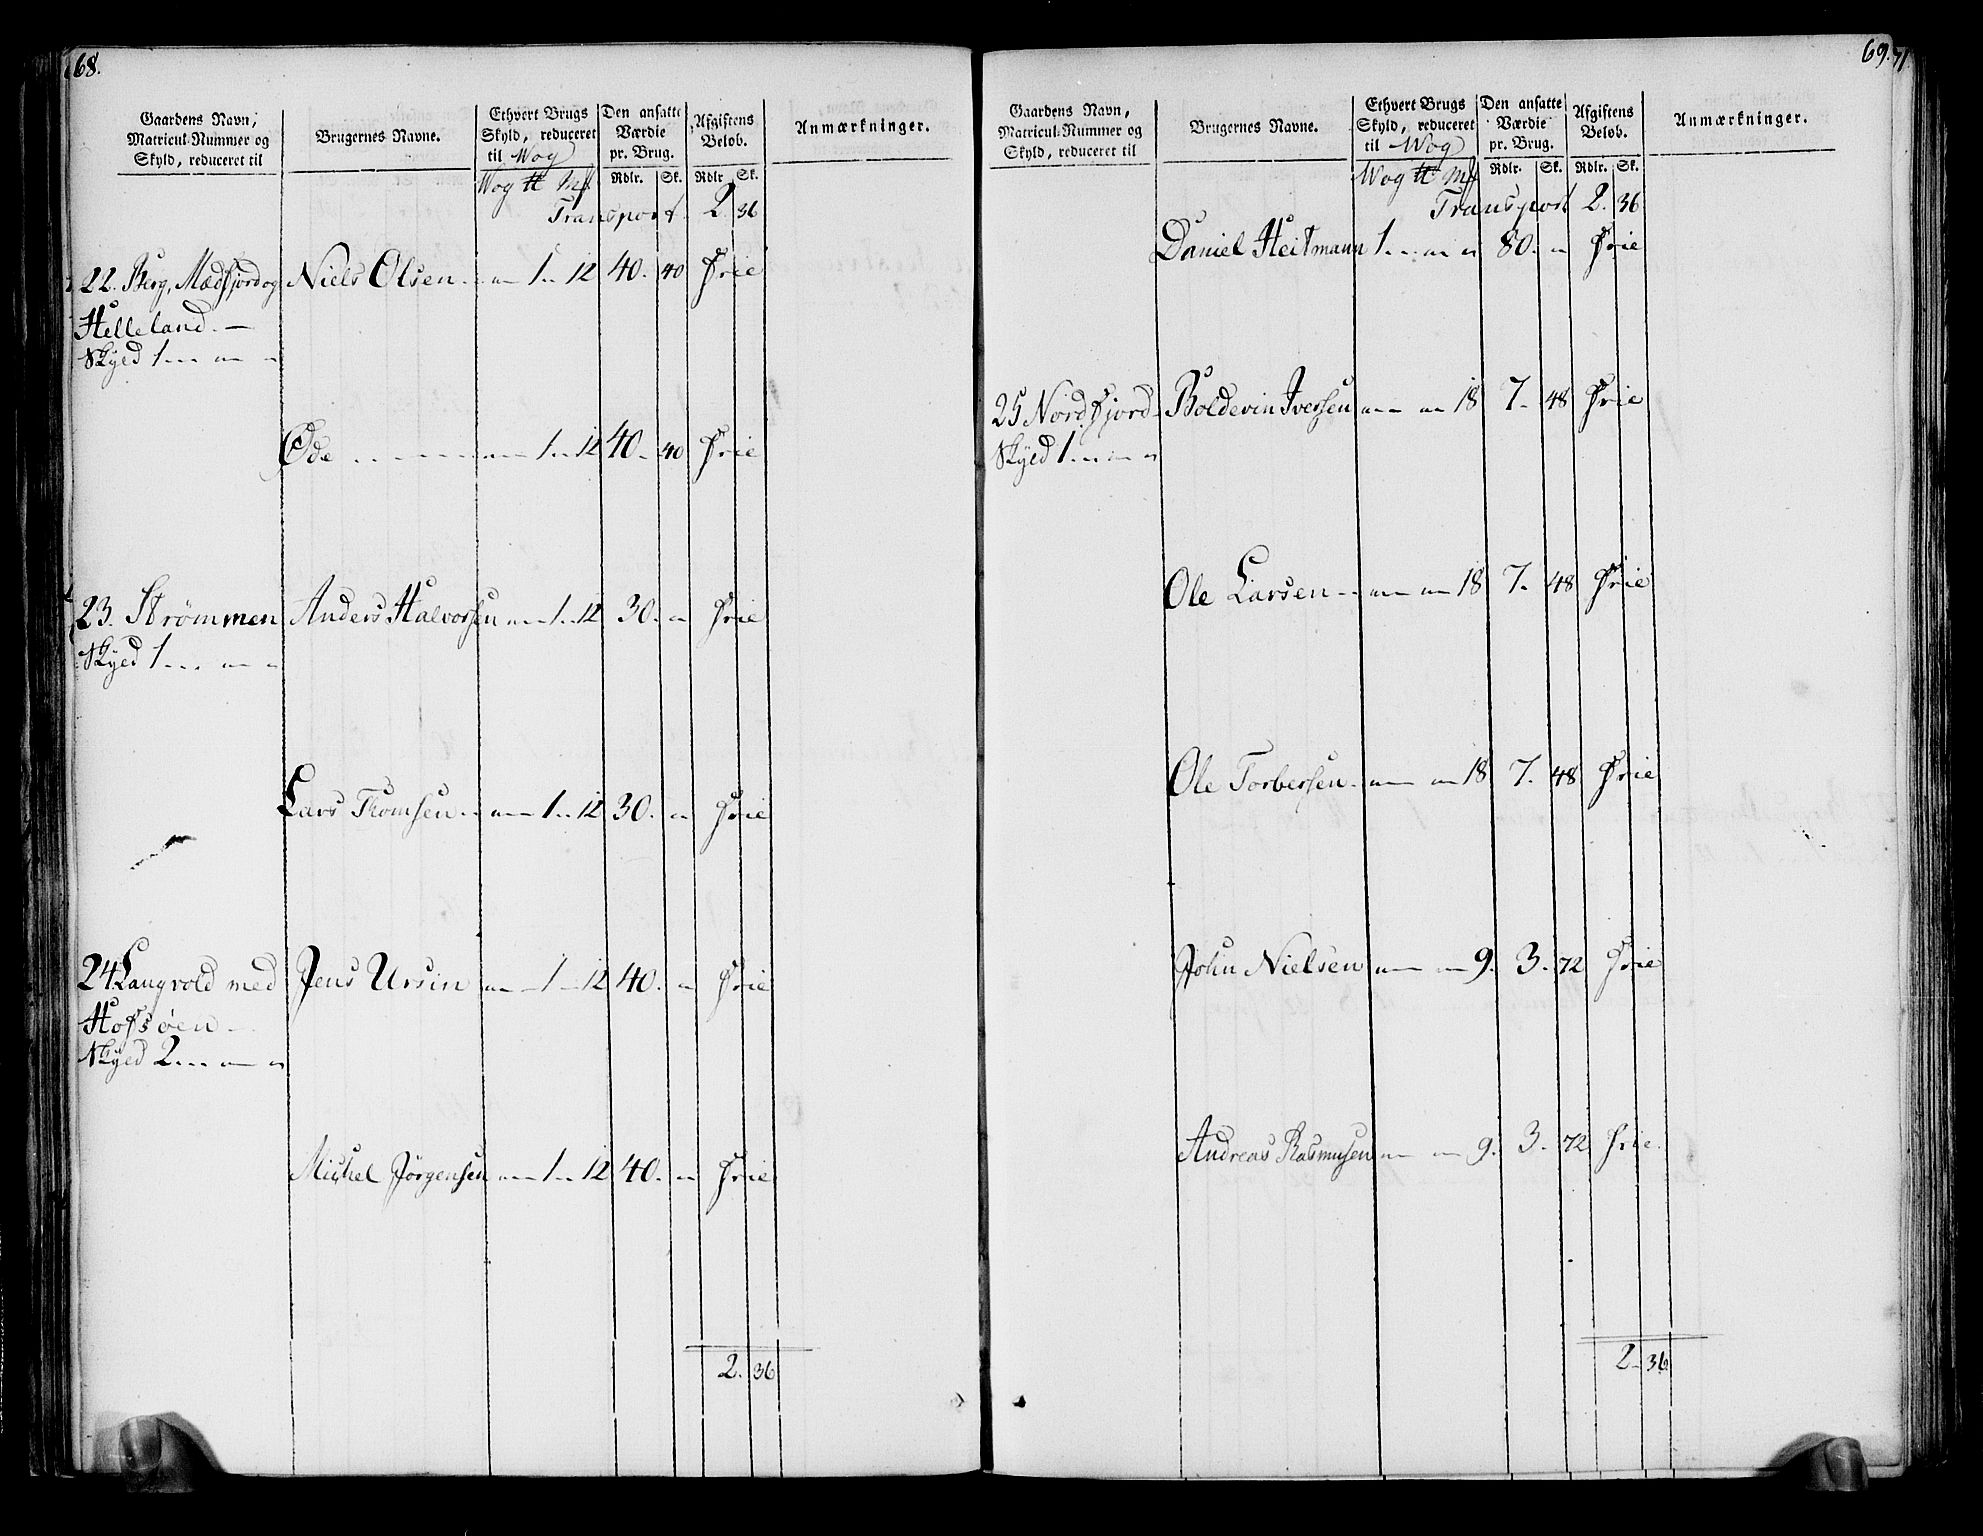 68.
Gaardens Navn, Matricul-Nummer og Skyld, reduceret til | Brugernes Navne. | Ethvert Brugs Skyld, reduceret til Wog | Den ansatte Værdie pr. Brug. | Afgiftens Beløb. | Anmærkninger.
Wog ℔ Mk | Rdlr. | Sk. | Rdlr | Sk.
Transport. 2. 36
22. Berg, Mædfjord og Niels Olsen - " - 1 - 12 40. 40 Frie
Helleland. -
Skyld 1 - " - "
Øde - " - 1 - 12 40. 40 Frie
23. Strømmen Anders Halvorsen " - 1 - 12 30. " Frie
Skyld 1 - " - "
Lars Thomsen - " - 1 - 12 30. " Frie
24 Langvold med Jens Ursin " - 1 - 12 40. " Frie
Hofsøen -
Skyld 2 - " - "
Michel Jørgensen " - 1 - 12 40. " Frie
2. 36
69.
71
Gaardens Navn, Matricul-Nummer og Skyld, reduceret til | Brugernes Navne. | Ethvert Brugs Skyld, reduceret til Wog | Den ansatte Værdie pr. Brug. | Afgiftens Beløb. | Anmærkninger.
Wog ℔ Mk | Rdlr. | Sk. | Rdlr. | Sk.
Transport 2. 36
Daniel Heitmann 1 - " - " 80. " Frie
25 Nordfjord Boldevin Iversen " - " 18 7. 48 Frie
Skyld 1 - " - "
Ole Larsen - " - " 18 7. 48 Frie
Ole Torbersen. " - " 18 7. 48 Frie
John Nielsen " - " 9. 3. 72 Frie
Andreas Rasmusen " - " 9. 3. 72 Frie.
2. 36